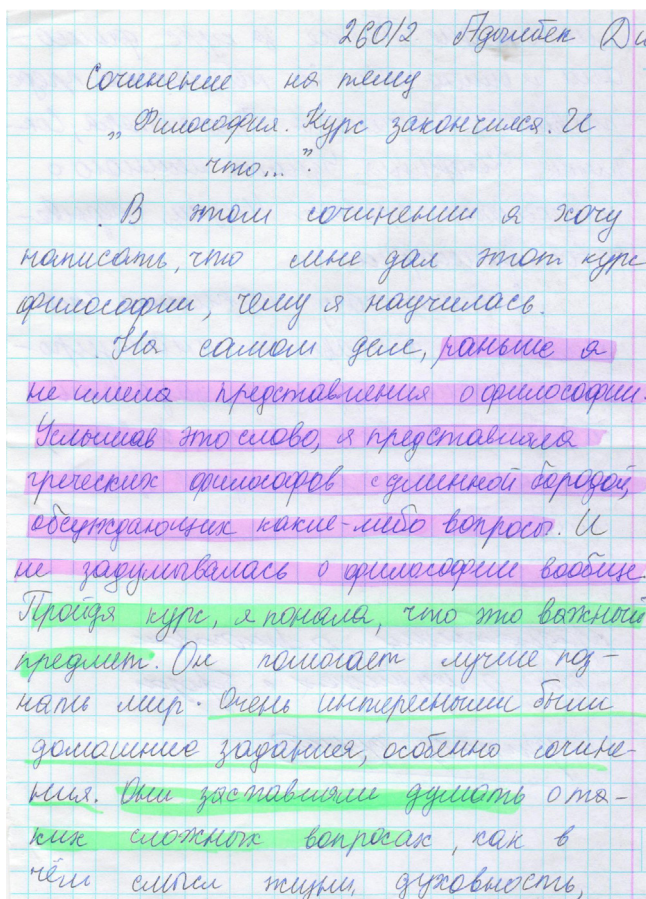 260/2 Адылбек Ди
Сочинение на тему
„Философия. Курс закончился. И
что...”.
В этом сочинении я хочу
написать, что мне дал этот курс
философии, чему я научилась.
На самом деле, раньше я
не имела представления о философии.
Услышав это слово, я представляла
греческих философов с длинной бородой,
обсуждающих какие-либо вопросы. И
не задумывалась о философии вообще.
Пройдя курс, я поняла, что это важный
предмет. Он помогает лучше поз-
нать мир. Очень интересными были
домашние задания, особенно сочине-
ния. Они заставляли думать о та-
ких сложных вопросах, как в
чём смысл жизни, духовность,